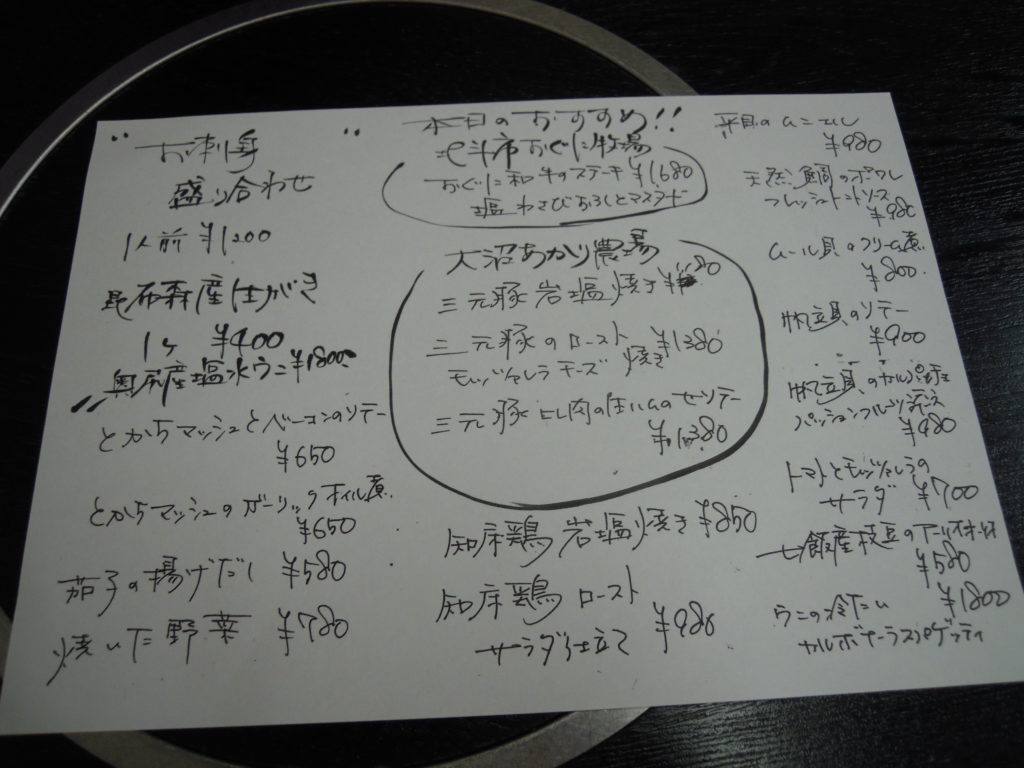 "お刺身"
盛り合わせ
1人前 ¥1200
昆布森産 生がき
1ヶ ¥400
奥尻産塩水ウニ ¥1800
とかちマッシュとベーコンのソテー
¥650
とかちマッシュのガーリックオイル煮
¥650
茄子の揚げだし ¥580
焼いた野菜 ¥780
本日のおすすめ!!
北斗市おぐに牧場
おぐに和牛のステーキ ¥1680
塩 わさび おろしとマスタード
大沼あかり農場
三元豚岩塩焼き
三元豚のロースト
モッツァレラチーズ焼き ¥1380
三元豚ヒレ肉の生ハムのせソテー
¥1380
知床鶏 岩塩焼き ¥850
知床鶏 ロースト
サラダ仕立て ¥980
平貝のムニエル
¥980
天然鯛のポワレ
フレッシュトマトソース
¥980
ムール貝のクリーム煮
¥800
帆立貝のソテー
¥900
帆立貝のカルパッチョ
パッションフルーツ
¥980
トマトとモッツァレラの
サラダ ¥700
七飯産枝豆の
¥580
ウニの冷たい ¥1800
カルボナーラスパゲッティ